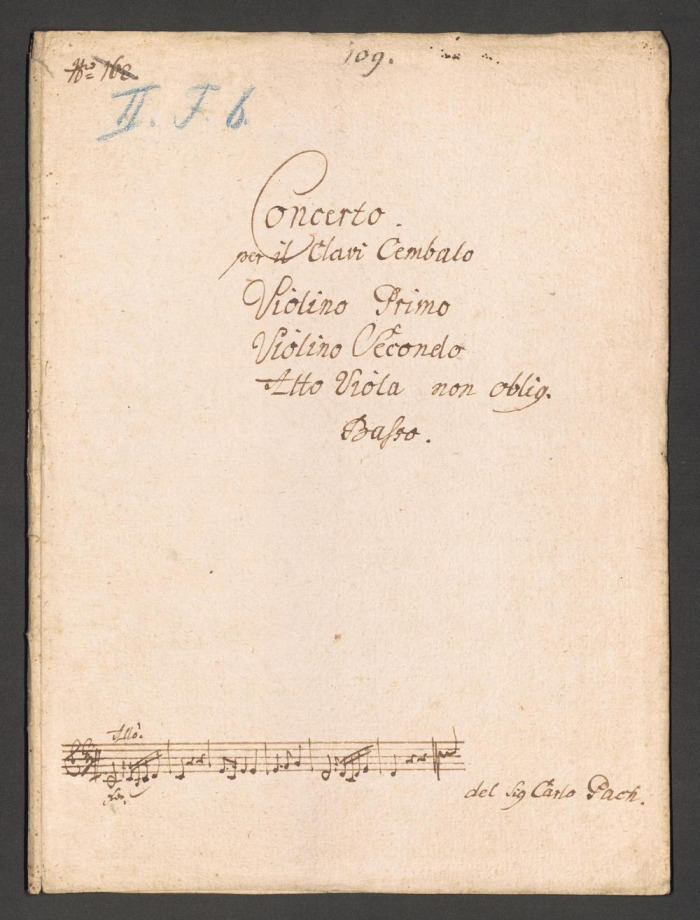 Nro 162
109.
II. F. 6.
Concerto.
per il Clavi Cembalo
Violino Primo
Violino Secondo
Alto Viola non oblig.
Basso.
Allo.
del Sig Carlo Pach.